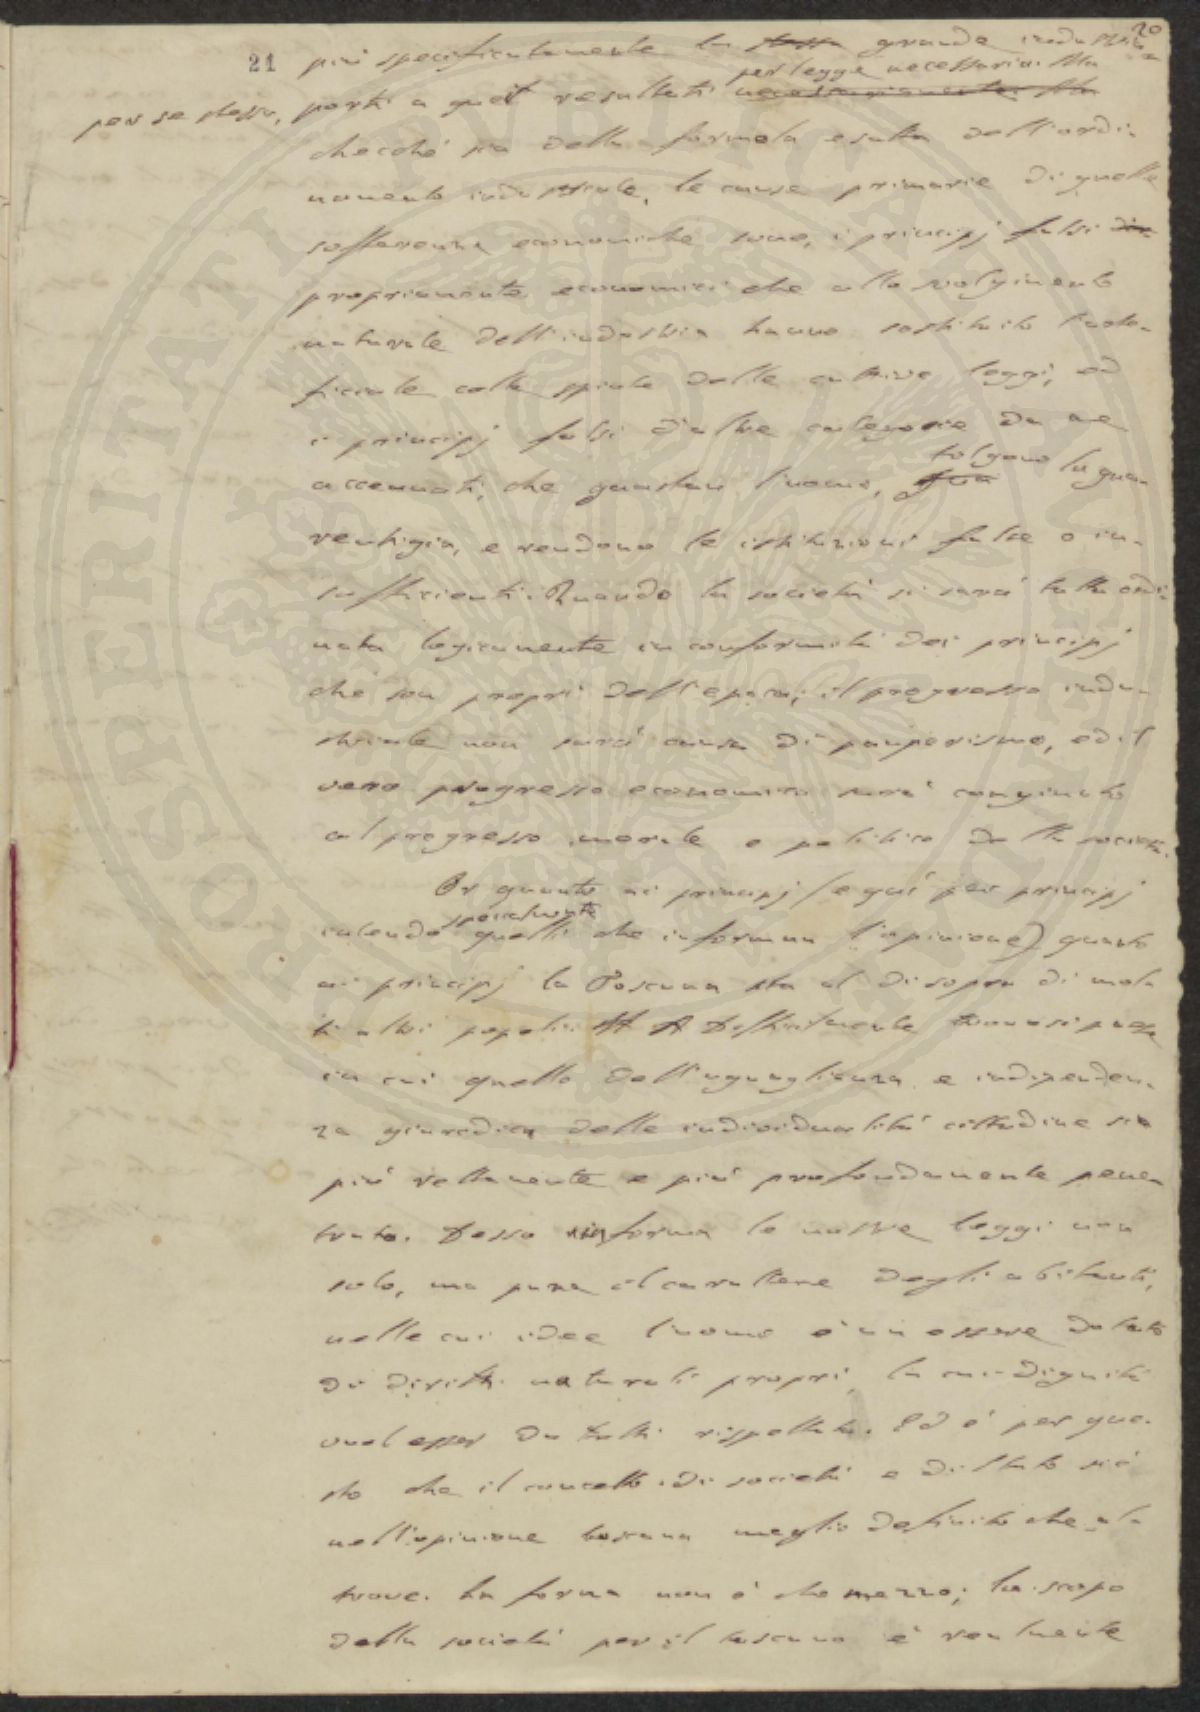 20
21 più specificatamente la stessa grande industria
per legge necessaria. Ma
per se stessa, porti a quei resultati necessariamente. Ma
checché sia della formola esatta dell'ordi-
namento industriale, le cause primarie di quelle
sofferenze economiche sono, i principj falsi
propriamente economici che allo svolgimento
naturale dell'industria hanno sostituito l'arti-
ficiale colla spinta delle cattive leggi, ed
i principj falsi d'altre categorie da me
tolgono la gua-
accennati, che guastan l'uomo,
rentigia, e rendono le istituzioni false o in-
sufficienti. Quando la società si sarà tutta ordi-
nata logicamente in conformità dei principj
che son proprj dell'epoca, il progresso indu-
striale non sarà causa di pauperismo, ed il
vero progresso economico sarà congiunto
al progresso morale e politico della società.
Or quanto ai principj (e quì per principj
specialmente
intendo quelli che informan l'opinione) quanto
ai principj la Toscana sta al disopra di mol-
ti altri popoli. Difficilmente trovasi paese
in cui quello dell'uguaglianza e indipenden-
za giuridica delle individualità cittadine sia
più rettamente e più profondamente pene-
trato. Desso informa le nostre leggi non
solo, ma pure il carattere degli abitanti,
nelle cui idee l'uomo è un essere dotato
di diritti naturali proprj, la cui dignità
vuol esser da tutti rispettata. Ed è per que-
sto che il concetto di società e di Stato si è
nell'opinione toscana meglio definito che al-
trove. La forma non è che mezzo; lo scopo
della società per il toscano è realmente